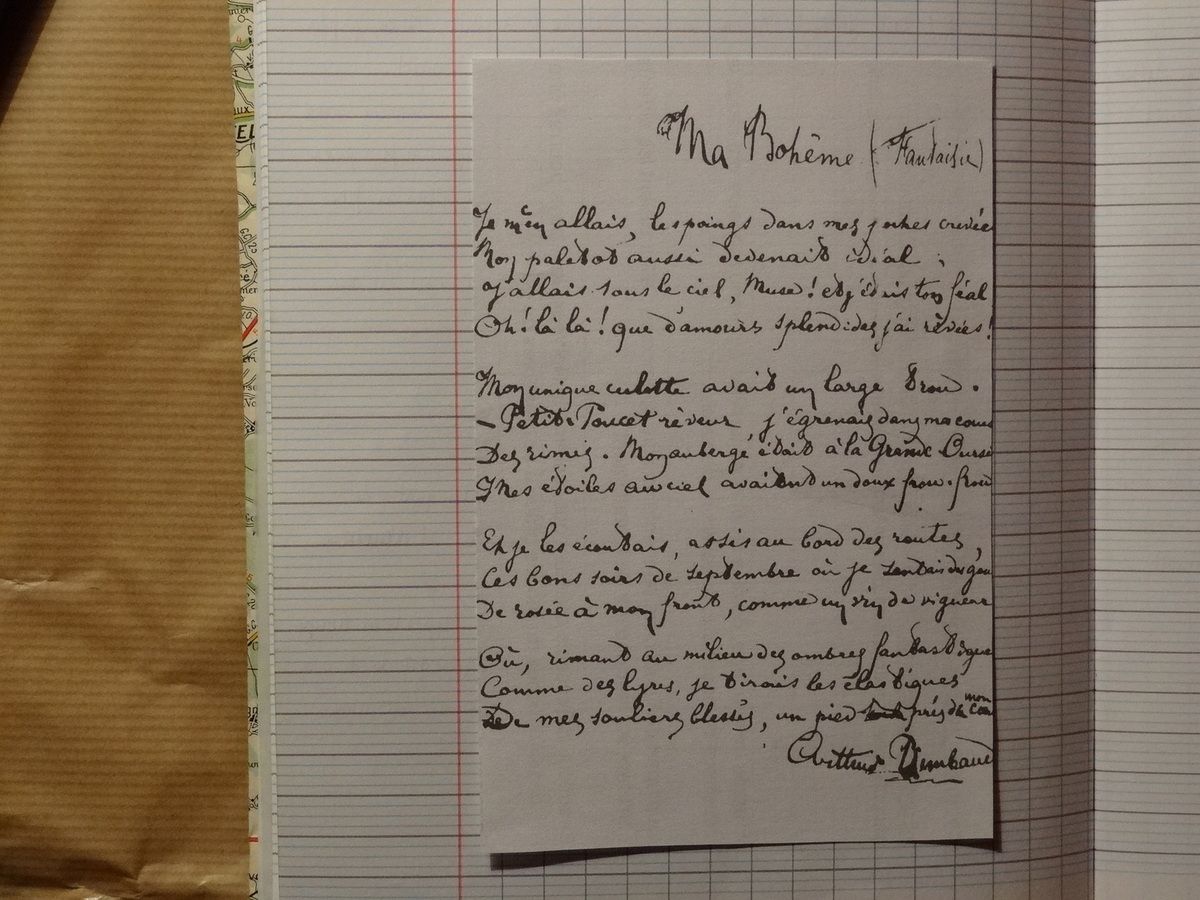 Ma Bohême (Fantaisie)
Je m'en allais, les poings dans mes poches crevée
Mon paletot aussi devenait idéal ;
J'allais sous le ciel, Muse ! et j'étais ton féal
Oh! là là ! que d'amours splendides j'ai rêvées !
Mon unique culotte avait un large trou.
– Petit-Poucet rêveur, j'égrenais dans ma cours
Des rimes. Mon auberge était à la Grande-Ourse
Mes étoiles au ciel avaient un doux frou-frou
Et je les écoutais, assis au bord des routes,
Ces bons soirs de septembre où je sentais des gou
De rosée à mon front, comme un vin de vigueur
Où, rimant au milieu des ombres fantastique
Comme des lyres, je tirais les élastiques
De mes souliers blessés, un pied près de mon cœu
Arthur Rimbaud